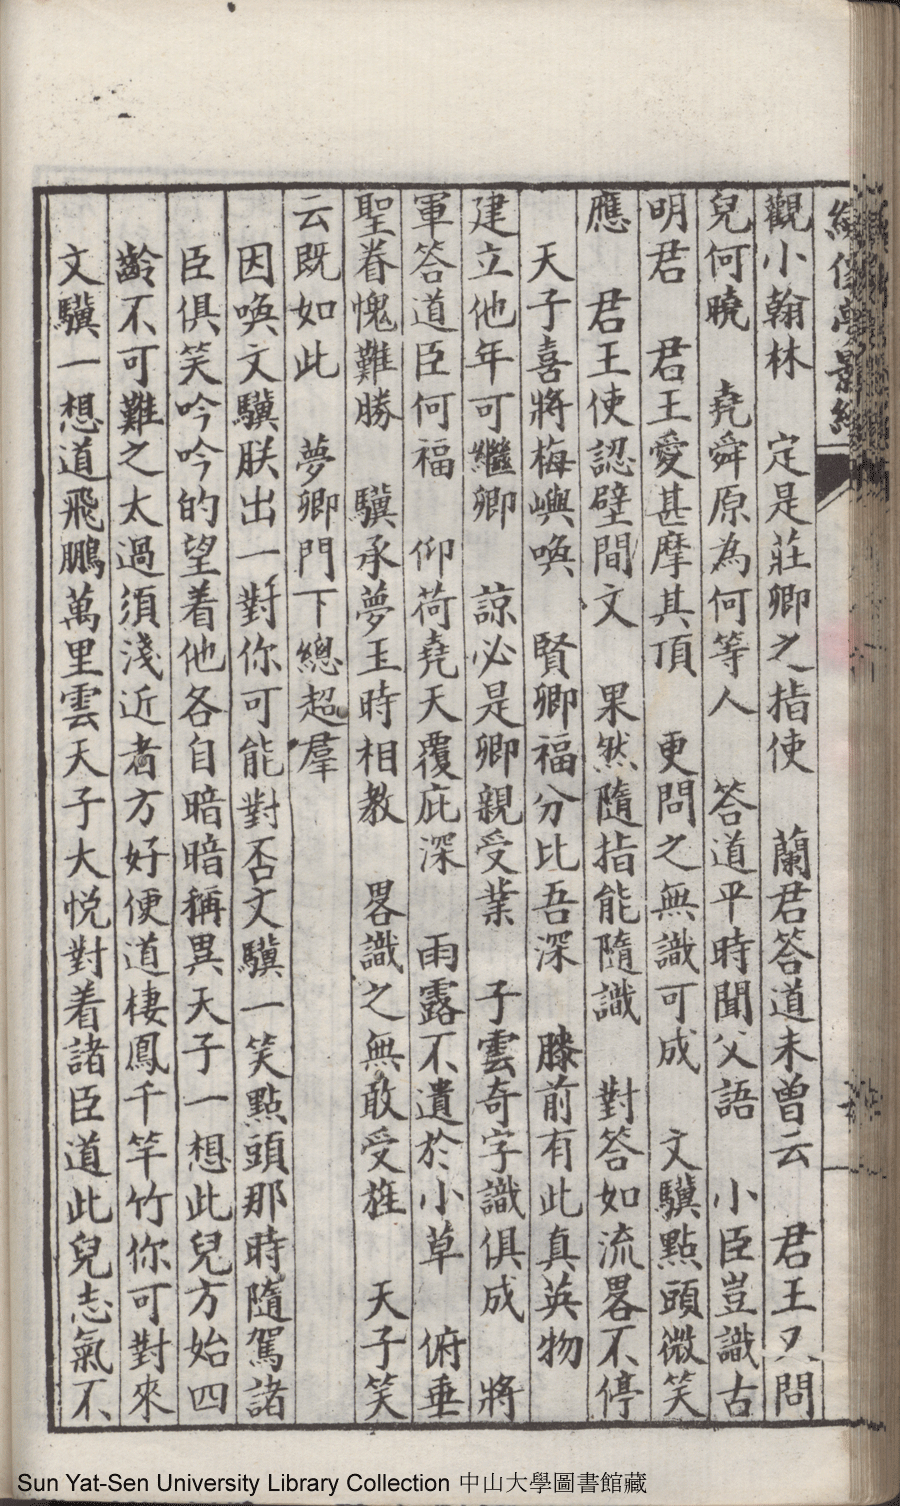 觀小翰林　定是莊卿之指使　蘭君答道未曾云　君王又問
兒何曉　堯舜原為何等人　答道平時聞父語　小臣豈識古
明君　君王愛甚摩其頂　更問之無識可成　文驥點頭微笑
應　君王使認壁間文　果然隨指能隨識　對答如流畧不停
天子喜將梅嶼喚　賢卿福分比吾深　膝前有此真英物
建立他年可繼卿　諒必是卿親受業　子雲奇字識俱成　將
軍答道臣何福　仰荷堯天覆庇深　雨露不遺於小草　俯垂
聖眷愧難勝　驥承夢玉時相教　畧識之無敢受旌　天子笑
云既如此　夢卿門下總超羣
因喚文驥朕出一對你可能對否文驥一笑點頭那時隨駕諸
臣俱笑吟吟的望着他各自暗暗稱異天子一想此兒方始四
齡不可難之太過須淺近者方好便道棲鳳千竿竹你可對來
文驥一想道飛鵬萬里雲天子大悅對着諸臣道此兒志氣不
Sun Yat-Sen University Library Collection 中山大學圖書館藏